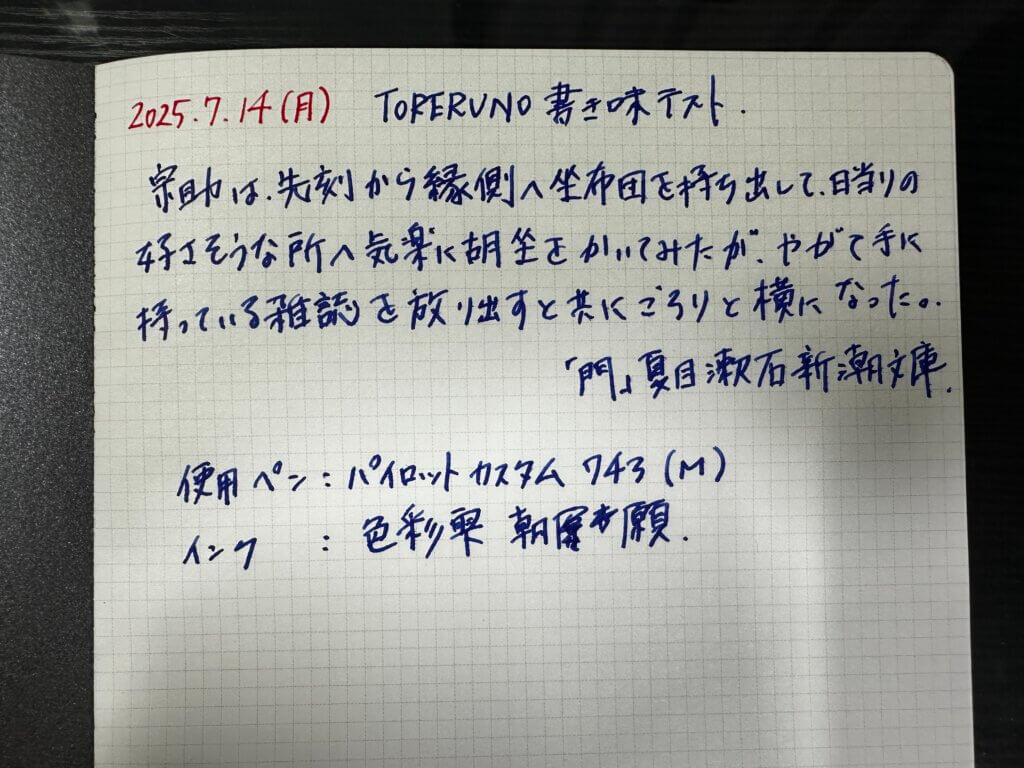 2025.7.14(月) TORERUNO 書き味テスト.
宗助は、先刻から縁側へ坐布団を持ち出して、日当りの
好さそうな所へ気楽に胡坐をかいてみたが、やがて手に
持っている雑誌を放り出すと共にごろりと横になった。
「門」夏目漱石 新潮文庫.
使用ペン：パイロット カスタム 743 (M)
インク ：色彩雫 朝 願.